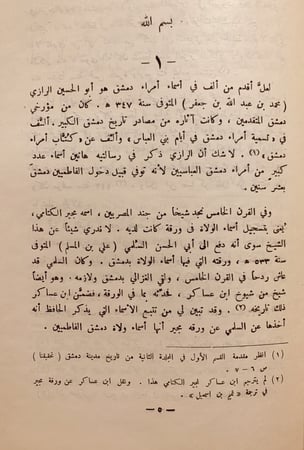 بسم الله
— ١ —
لعل أقدم من ألف في أسماء أمراء دمشق هو أبو الحسين الرازي
(محمد بن عبد الله بن جعفر) المتوفى سنة ٣٤٧ هـ. كان من مؤرخي
دمشق المتقدمين، وكانت آثاره من مصادر تاريخ دمشق الكبير. ألف
« في تسمية أمراء دمشق في أيام بني العباس » وألف عن « كتّاب أمراء
دمشق » (١). لا شك أن الرازي ذكر في رسالتيه هاتين أسماء عدد
كبير من أمراء العباسيين لأنه توفي قبيل دخول الفاطميين دمشق
بعشر سنين.
وفي القرن الخامس نجد شيخاً من جند المصريين، اسمه مجير الكتامي،
يُعنى بتسجيل أسماء الولاة بورقة كانت لديه. لا ندري شيئاً عن هذا
الشيخ سوى أنه دفع الى أبي الحسن السُلَمي (علي بن المسلم) المتوفى
سنة ٥٣٣ هـ، ورقته التي فيها أسماء الولاة بدمشق. وكان السلمي قد
عاش ردحاً في القرن الخامس، ولقي الغزالي بدمشق ولازمه. وهو أيضاً
شيخ من شيوخ ابن عساكر، فحدّثه بما في الورقة، فضمّن ابن عساكر
ذلك تاريخه (٢). وقد تبين لي من تتبع الأسماء التي يذكر الحافظ أنه
أخذها عن السلمي عن ورقة مجير أنها أسماء ولاة دمشق الفاطميين.
(١) انظر مقدمة القسم الأول في المجلدة الثانية من تاريخ مدينة دمشق (تحقيقنا)
ص ٦ - ٧.
(٢) لم يترجم ابن عساكر لمجير الكتامي هذا. ونقل ابن عساكر عن ورقة مجير
في ترجمة « بن اسمعيل ».
— ٥ —